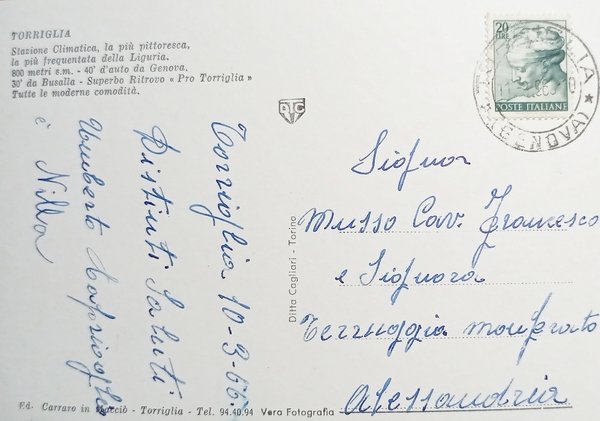 TORRIGLIA
Stazione Climatica, la più pittoresca,
la più frequentata della Liguria.
800 metri s.m. - 40' d'auto da Genova.
30' da Busalla - Superbo Ritrovo « Pro Torriglia »
Tutte le moderne comodità.
Torriglia 10-9-66
Distinti Saluti
Umberto
è Nilla
Ditta Cagliari - Torino
20
LIRE
POSTE ITALIANE
(GENOVA)
Signor
Musso Cav. Francesco
e Signora
Terruggia Monferrato
Alessandria
Ed. Carraro in - Torriglia - Tel. 94.40.94 Vera Fotografia